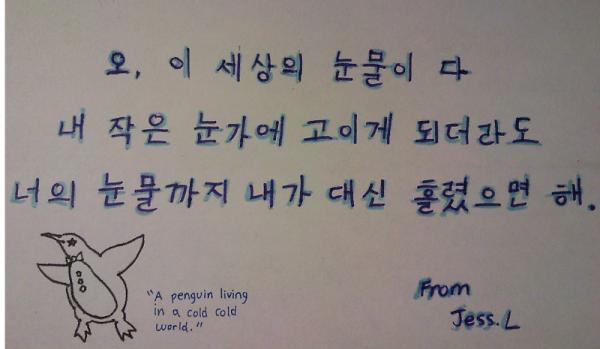 오, 이 세상의 눈물이 다
내 작은 눈가에 고이게 되더라도
너의 눈물까지 내가 대신 흘렸으면 해.
"A penguin living
in a cold cold
world."
From
Jess.L